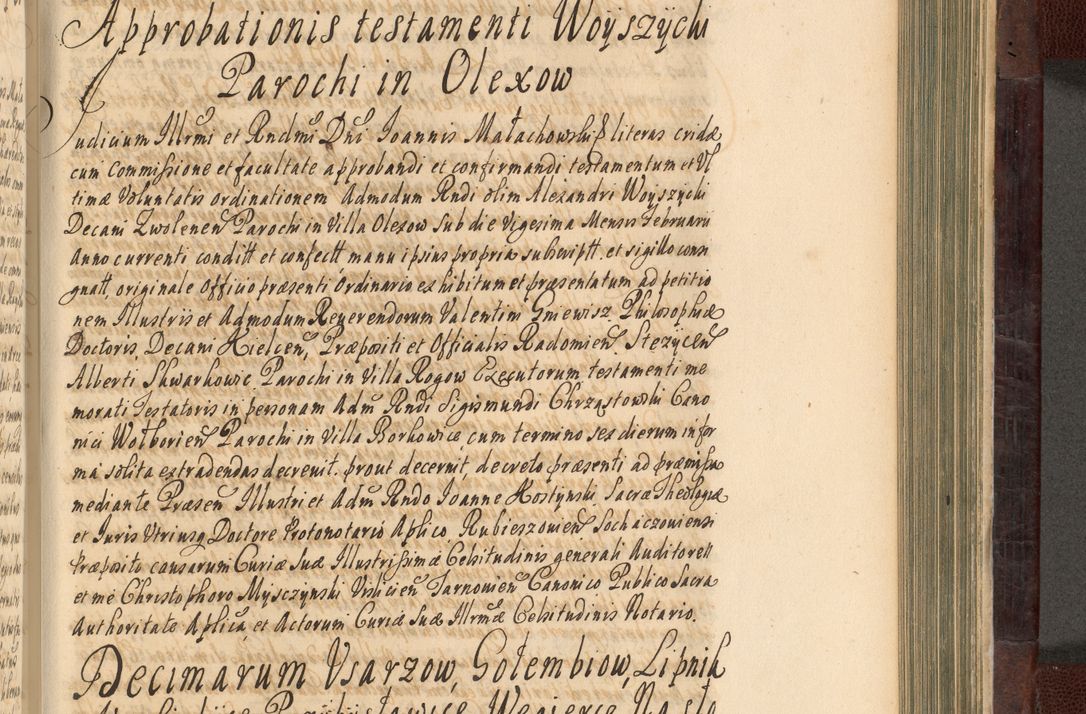 Approbationis testamenti Woÿszÿcki
Parochi in Olexow
Judicium Illrmi et Rndmi Dni Joannis Małachowski literas cridæ
cum Commissione et facultate approbandi et confirmandi testamentum et Vl
timæ Voluntatis ordinationem Admodum Rndi olim Alexandri Woyszycki
Decani Zwolenen Parochi in Villa Olexow Sub die Vigesima Mensis Februarii
Anno currenti conditt et confectt, manu ipsius propria subscriptt. et sigillo consi
gnatt, originale Officio præsenti Ordinario exhibitum et præsentatum ad petitio
nem Illustris et Admodum Reverendorum Valentini Gniewisz Philosophiæ
Doctoris, Decani Kielcen, Præpositi et Officialis Radomien. Stezycen
Alberti Skwarkowic Parochi in Villa Rogow Executorum testamenti me
morati Testatoris in personam Adm Rndi Sigismundi Chrząstowski Cano
nici Wolborien Parochi in Villa Borkowice cum termino sex dierum in for
ma solita extradendas decrevit. prout decernit, decreto præsenti ad præmissa
mediante Præsen Illustri et Adm Rndo Joanne Kostynski Sacræ Theologiæ
et Juris Vtriusq Doctore Protonotario Aplico, Rubieszovien Sochaczoviensi
Præposito causarum Curiæ Suæ Illustrissimæ Celsitudinis generali Auditorett
et me Christophoro Mysczynski Vislicien Tarnovien Canonico Publico Sacra
Authoritate Aplica, et Actorum Curiæ Suæ Illrmæ Celsitudinis Notario.
Decimarum Vsarzow, Gołembiow, Lipnik